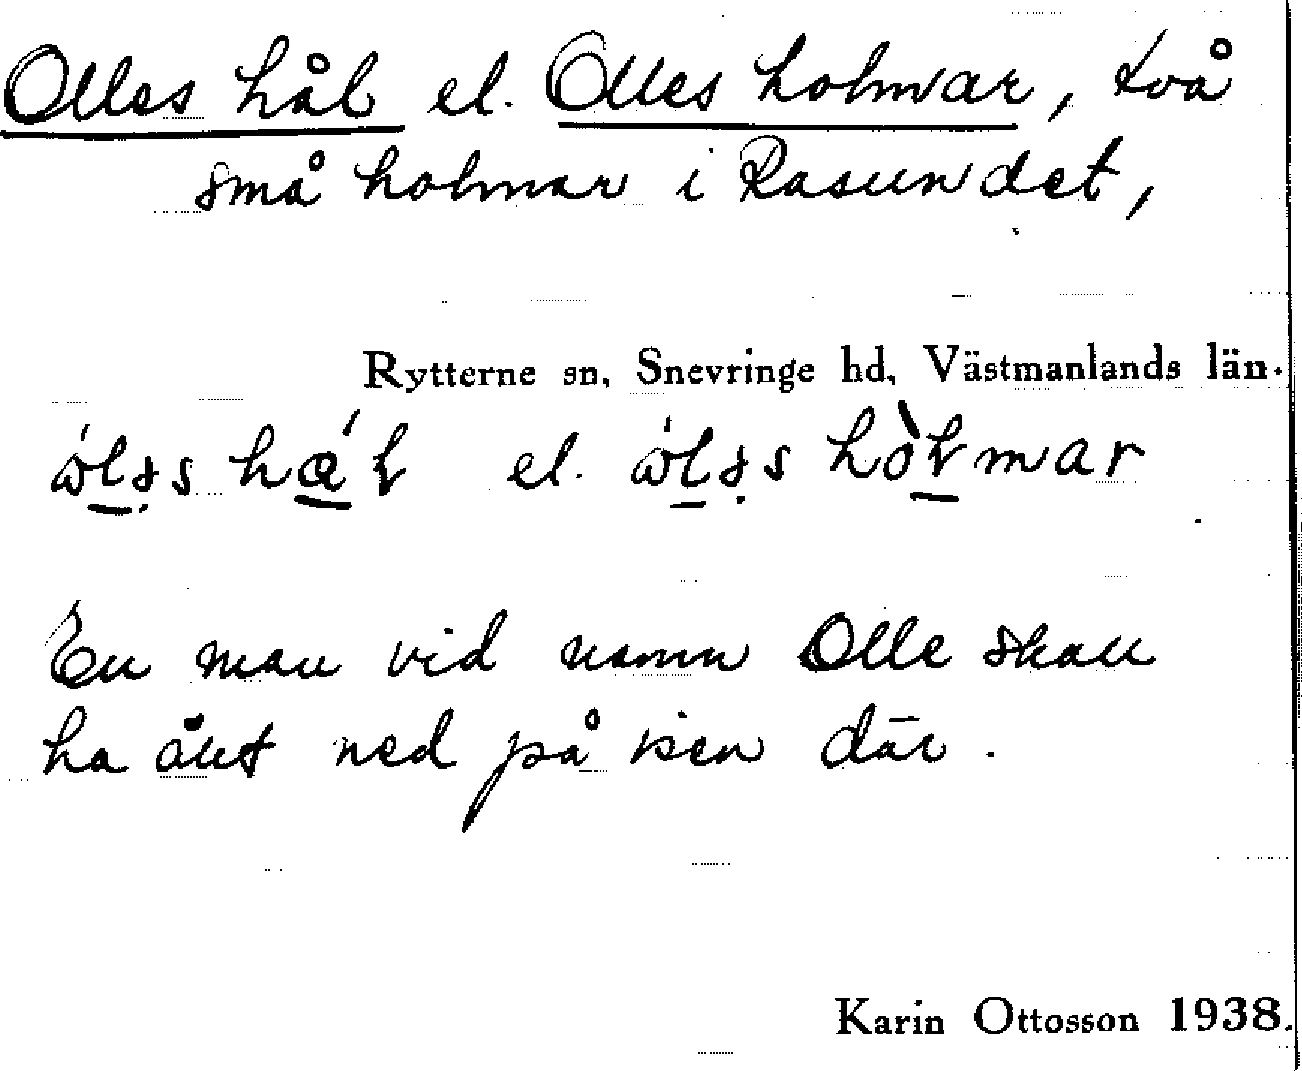 Olles hål el. Olles holmar, två
små holmar i Rasundet,
Rytterne sn, Snevringe hd, Västmanlands län.
el.
En man vid namn Olle skall
ha åkt ned på isen där.
Karin Ottosson 1938.